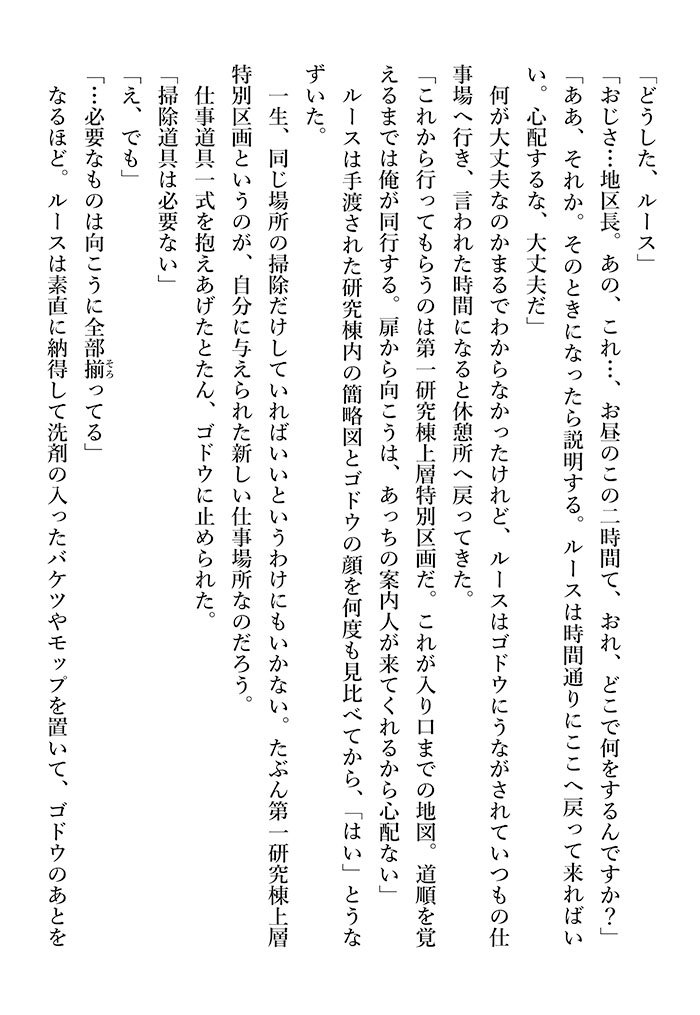 「どうした、ルース」
「おじさ…地区長。あの、これ…、お昼のこの二時間て、おれ、どこで何をするんですか？」
「ああ、それか。そのときになったら説明する。ルースは時間通りにここへ戻って来ればい
い。心配するな、大丈夫だ」
　何が大丈夫なのかまるでわからなかったけれど、ルースはゴドウにうながされていつもの仕
事場へ行き、言われた時間になると休憩所へ戻ってきた。
「これから行ってもらうのは第一研究棟上層特別区画だ。これが入り口までの地図。道順を覚
えるまでは俺が同行する。扉から向こうは、あっちの案内人が来てくれるから心配ない」
　ルースは手渡された研究棟内の簡略図とゴドウの顔を何度も見比べてから、「はい」とうな
ずいた。
　一生、同じ場所の掃除だけしていればいいというわけにもいかない。たぶん第一研究棟上層
特別区画というのが、自分に与えられた新しい仕事場所なのだろう。
　仕事道具一式を抱えあげたとたん、ゴドウに止められた。
「掃除道具は必要ない」
「え、でも」
「…必要なものは向こうに全部揃そろってる」
　なるほど。ルースは素直に納得して洗剤の入ったバケツやモップを置いて、ゴドウのあとを